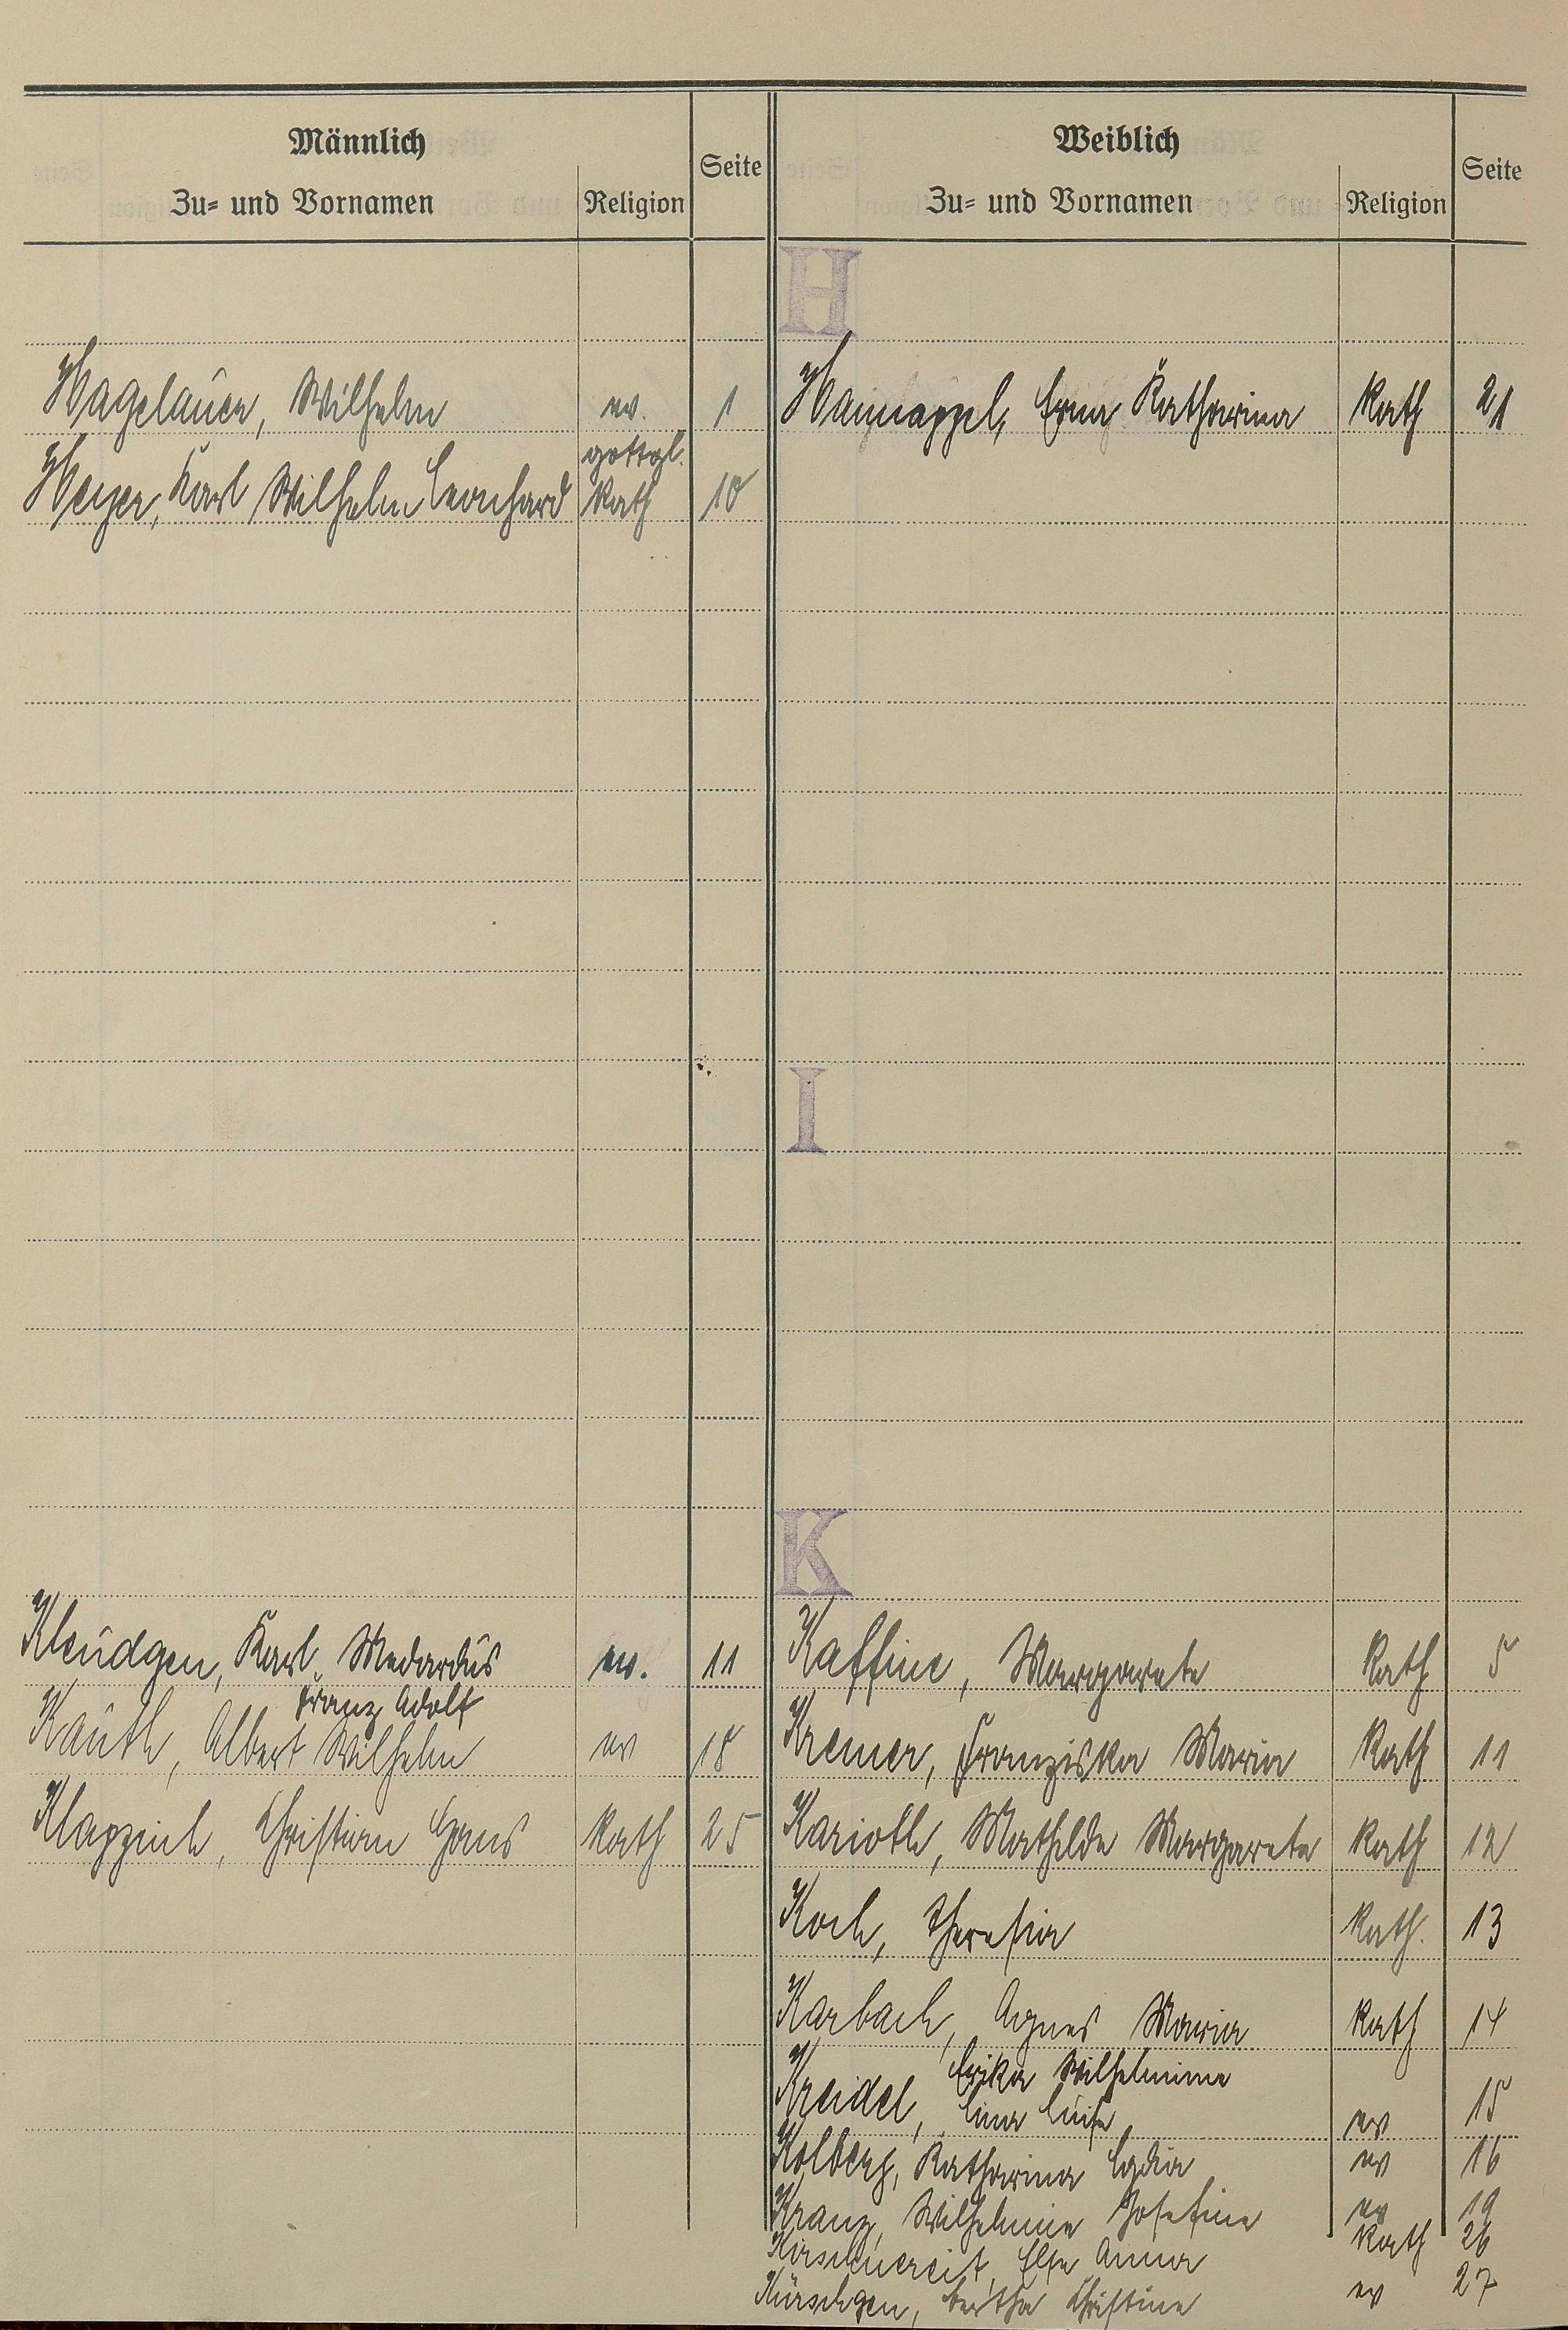 Männlich
Zu- und Vornamen Religion Seite
Weiblich
Zu- und Vornamen Religion Seite
H
Hagelauer, Wilhelm ev. 1
gottgl.
Heyer, Karl Wilhelm Leonhard Kath 10
Hannappel, Erna Katharina Kath 21
I
K
Kleudgen, Karl Medardus ev. 11
Franz Adolf
Kauth, Albert Wilhelm ev 18
Klappich, Christian Hans Kath 25
Kaffine, Margarete Kath 5
Kremer, Franziska Maria Kath 11
Karioth, Mathilde Margareta Kath 12
Koch, Theresia Kath. 13
Karbach, Agnes Maria Kath 14
Erika Wilhelmine
Kreidel, Lina Luise ev 15
Kolberg, Katharina Lydia ev 16
Kranz, Wilhelmine Josefine ev 19
Kirschnereit, Else Anna Kath 26
Kürschgen, Bertha Christine ev 27